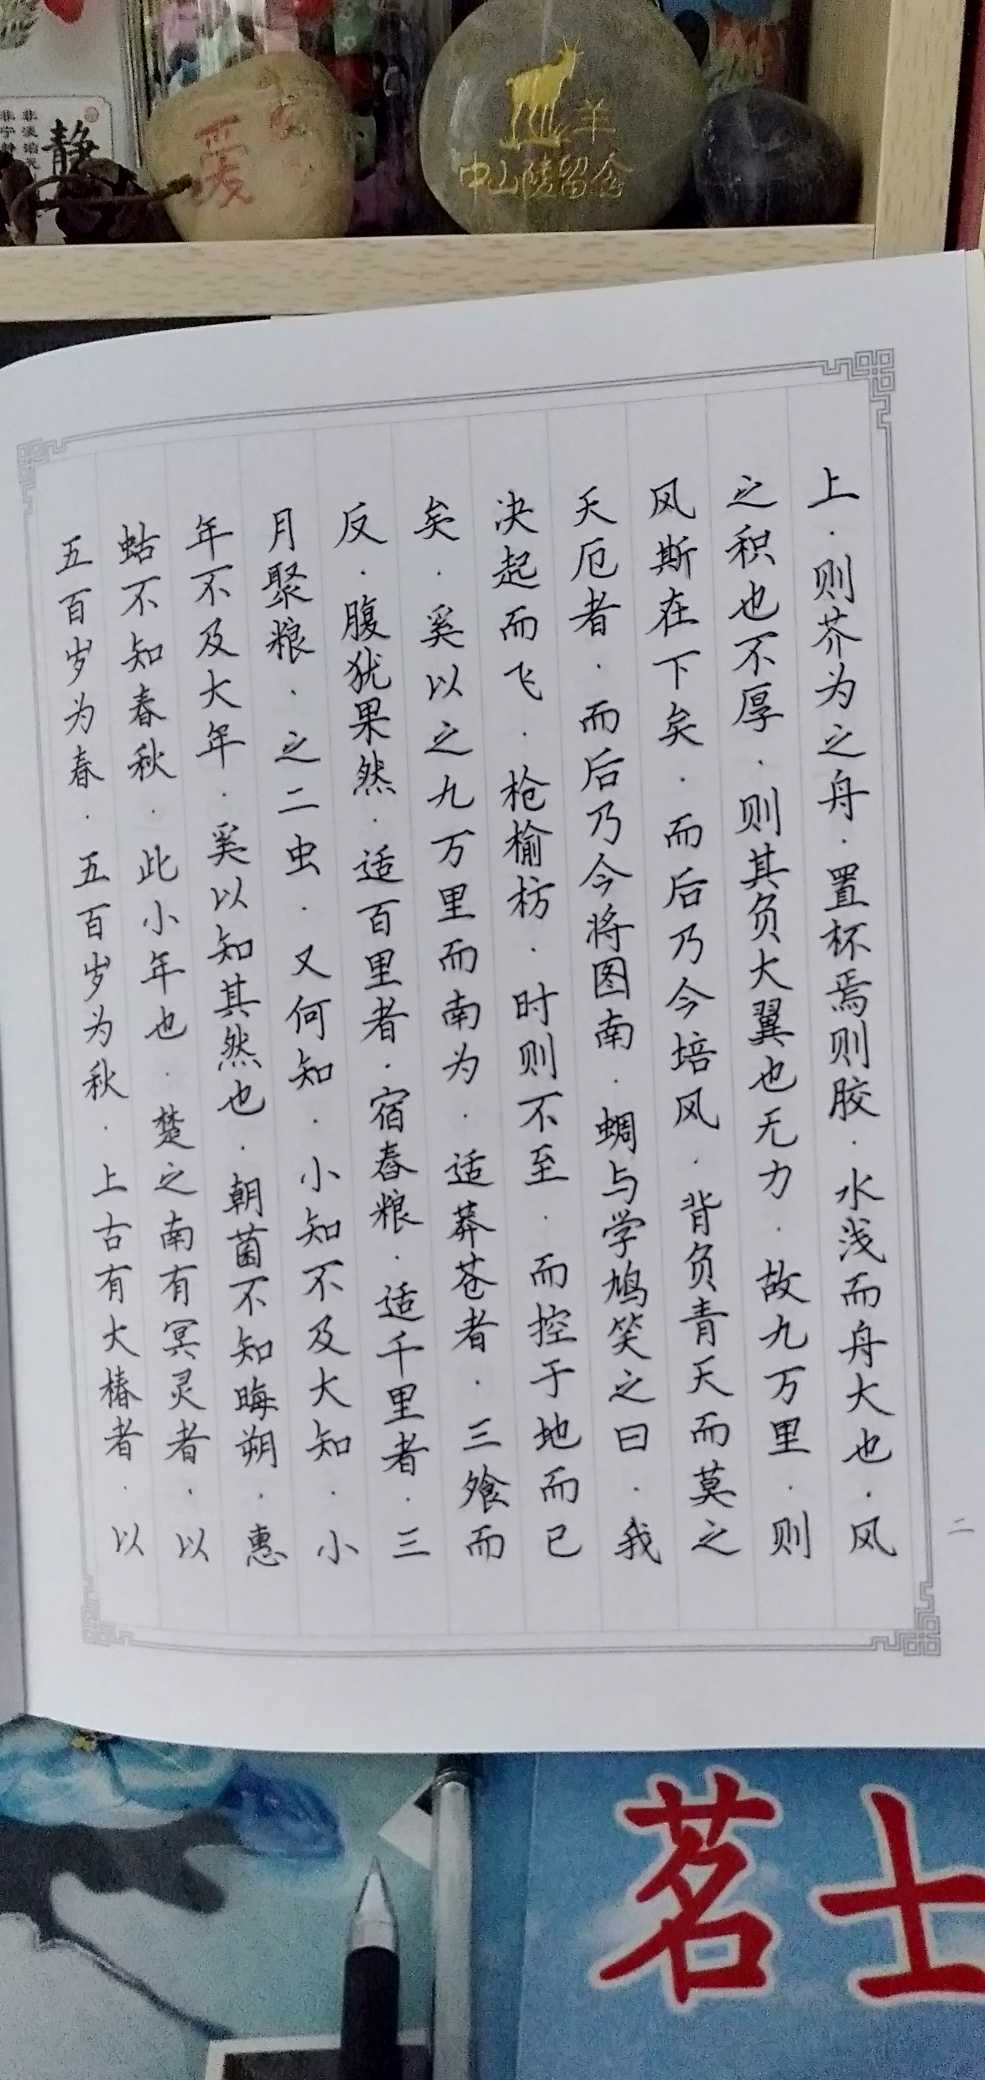 静
爱
羊
中山陵留念
二
上．则芥为之舟．置杯焉则胶．水浅而舟大也．风
之积也不厚．则其负大翼也无力．故九万里．则
风斯在下矣．而后乃今培风．背负青天而莫之
夭厄者．而后乃今将图南．蜩与学鸠笑之曰．我
决起而飞．枪榆枋．时则不至．而控于地而已
矣．奚以之九万里而南为．适莽苍者．三飨而
反．腹犹果然．适百里者．宿舂粮．适千里者．三
月聚粮．之二虫．又何知．小知不及大知．小
年不及大年．奚以知其然也．朝菌不知晦朔．惠
蛄不知春秋．此小年也．楚之南有冥灵者．以
五百岁为春．五百岁为秋．上古有大椿者．以
茗士